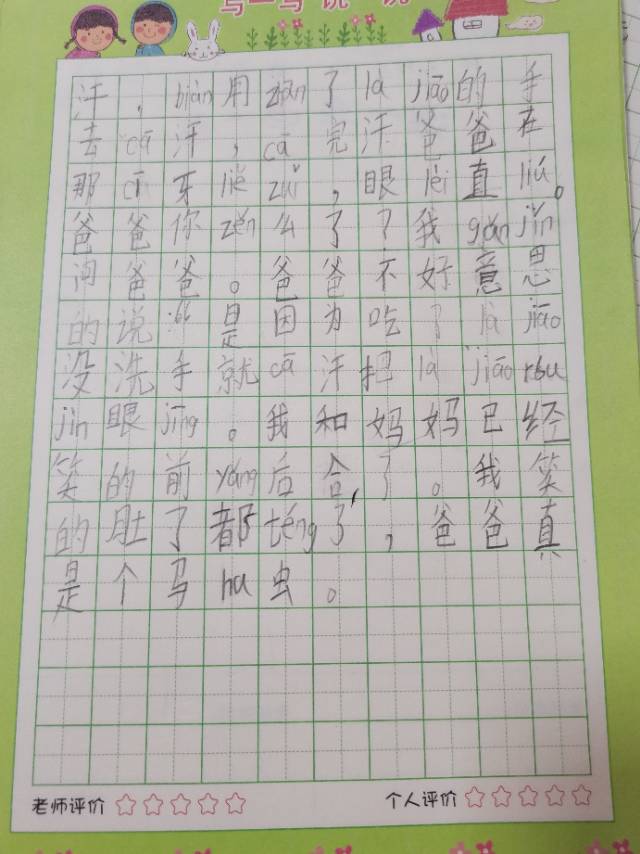 写一写 说一说
汗，biàn用zhān了là jiāo的手
去cā汗，cā完汗爸爸在
那cī牙liě zuǐ，眼lèi直liú。
爸爸你zěn么了？我gǎn jǐn
问爸爸。爸爸不好意思
的说：是因为吃了là jiāo
没洗手就cā汗把là jiāo róu
jìn眼jīng。我和妈妈已经
笑的前yǎng后合了。我笑
的肚了都téng了，爸爸真
是个马hu虫。
老师评价 个人评价